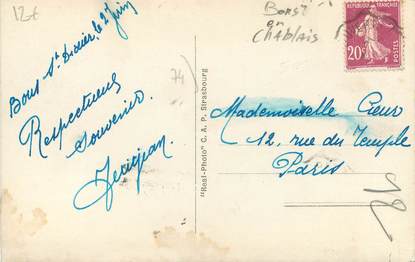 12€
Bons St Didier, le 27 Juin
Respectueux
Souvenirs
74
"Real-Photo" C. A. P. Strasbourg
Bons
en
Chablais
REPUBLIQUE FRANÇAISE
20c
Mademoiselle Cœur
12, rue du Temple
Paris